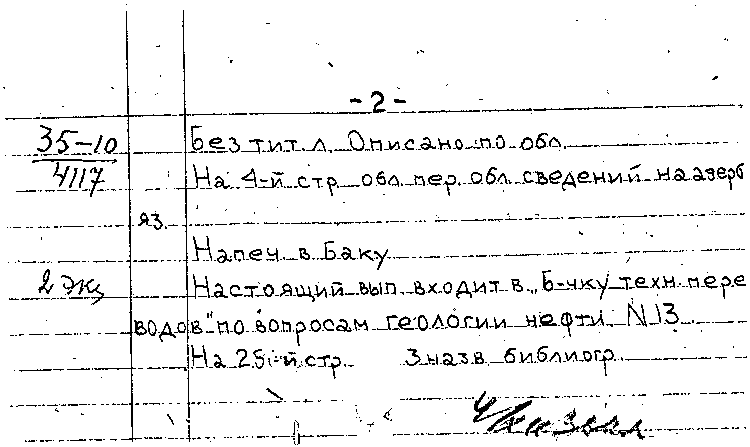 -2-
35-10 Без тит. л. Описано по обл.
4117 На 4-й стр. обл. пер. обл. сведений на азерб.
яз.
Напеч. в Баку
2 экз Настоящий вып. входит в „Б-чку техн. пере
водов" по вопросам геологии нефти N 13
На 25-й стр. 3 назв. библиогр.